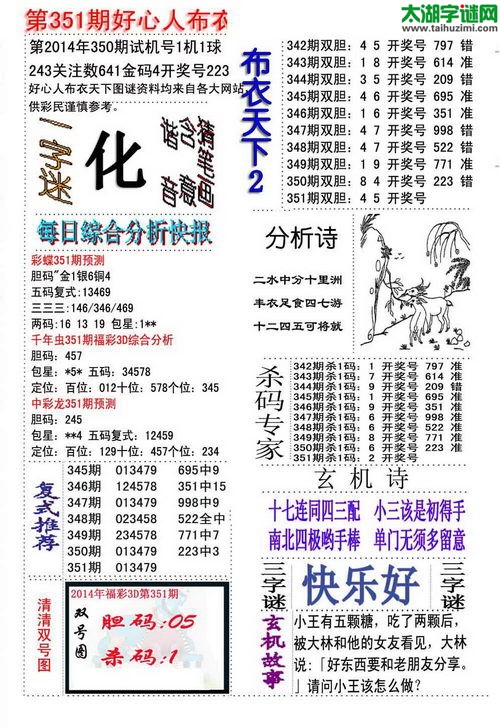 第351期好心人布衣
太湖字谜网
www.taihuzimi.com
第2014年350期试机号1机1球
243关注数641金码4开奖号223
好心人布衣天下图谜资料均来自各大网站,
供彩民谨慎参考。
一字迷
化
猜笔画
含意
谐音
每日综合分析快报
彩蝶351期预测
胆码"金1银6铜4
五码复式:13469
三三三:146/346/469
两码:16 13 19 包星:1**
千年虫351期福彩3D综合分析
胆码: 457
包星: *5* 五码: 34578
定位: 百位: 012十位: 578个位: 345
中彩龙351期预测
胆码: 245
包星: **4 五码复式: 12459
定位: 百位: 129十位: 457个位: 234
复式推荐
345期 013479 695中9
346期 124578 351中15
347期 013479 998中9
348期 023458 522全中
349期 234578 771中7
350期 013479 223中3
351期 013479
清清双号图
2014年福彩3D第351期
双号图
胆码:05
杀码:1
布衣天下2
342期双胆: 4 5 开奖号 797 错
343期双胆: 1 8 开奖号 614 准
344期双胆: 3 5 开奖号 209 错
345期双胆: 4 6 开奖号 695 准
346期双胆: 1 6 开奖号 351 准
347期双胆: 4 7 开奖号 998 错
348期双胆: 4 7 开奖号 522 错
349期双胆: 1 9 开奖号 771 准
350期双胆: 8 4 开奖号 223 错
351期双胆: 4 5 开奖号
分析诗
二水中分十里洲
丰衣足食四七游
十二四五可将就
杀码专家
342期杀1码: 1 开奖号 797 准
343期杀1码: 7 开奖号 614 准
344期杀1码: 9 开奖号 209 错
345期杀1码: 1 开奖号 695 准
346期杀1码: 9 开奖号 351 准
347期杀1码: 3 开奖号 998 准
348期杀1码: 9 开奖号 522 准
349期杀1码: 8 开奖号 771 准
350期杀1码: 6 开奖号 223 准
351期杀1码: 2 开奖号
玄机诗
十七连同四三配 小三该是初得手
南北四极哟手棒 单门无须多留意
三字谜
快乐好
三字谜
玄机故事
小王有五颗糖，吃了两颗后，
被大林和他的女友看见，大林
说:「好东西要和老朋友分享。
」请问小王该怎么做?